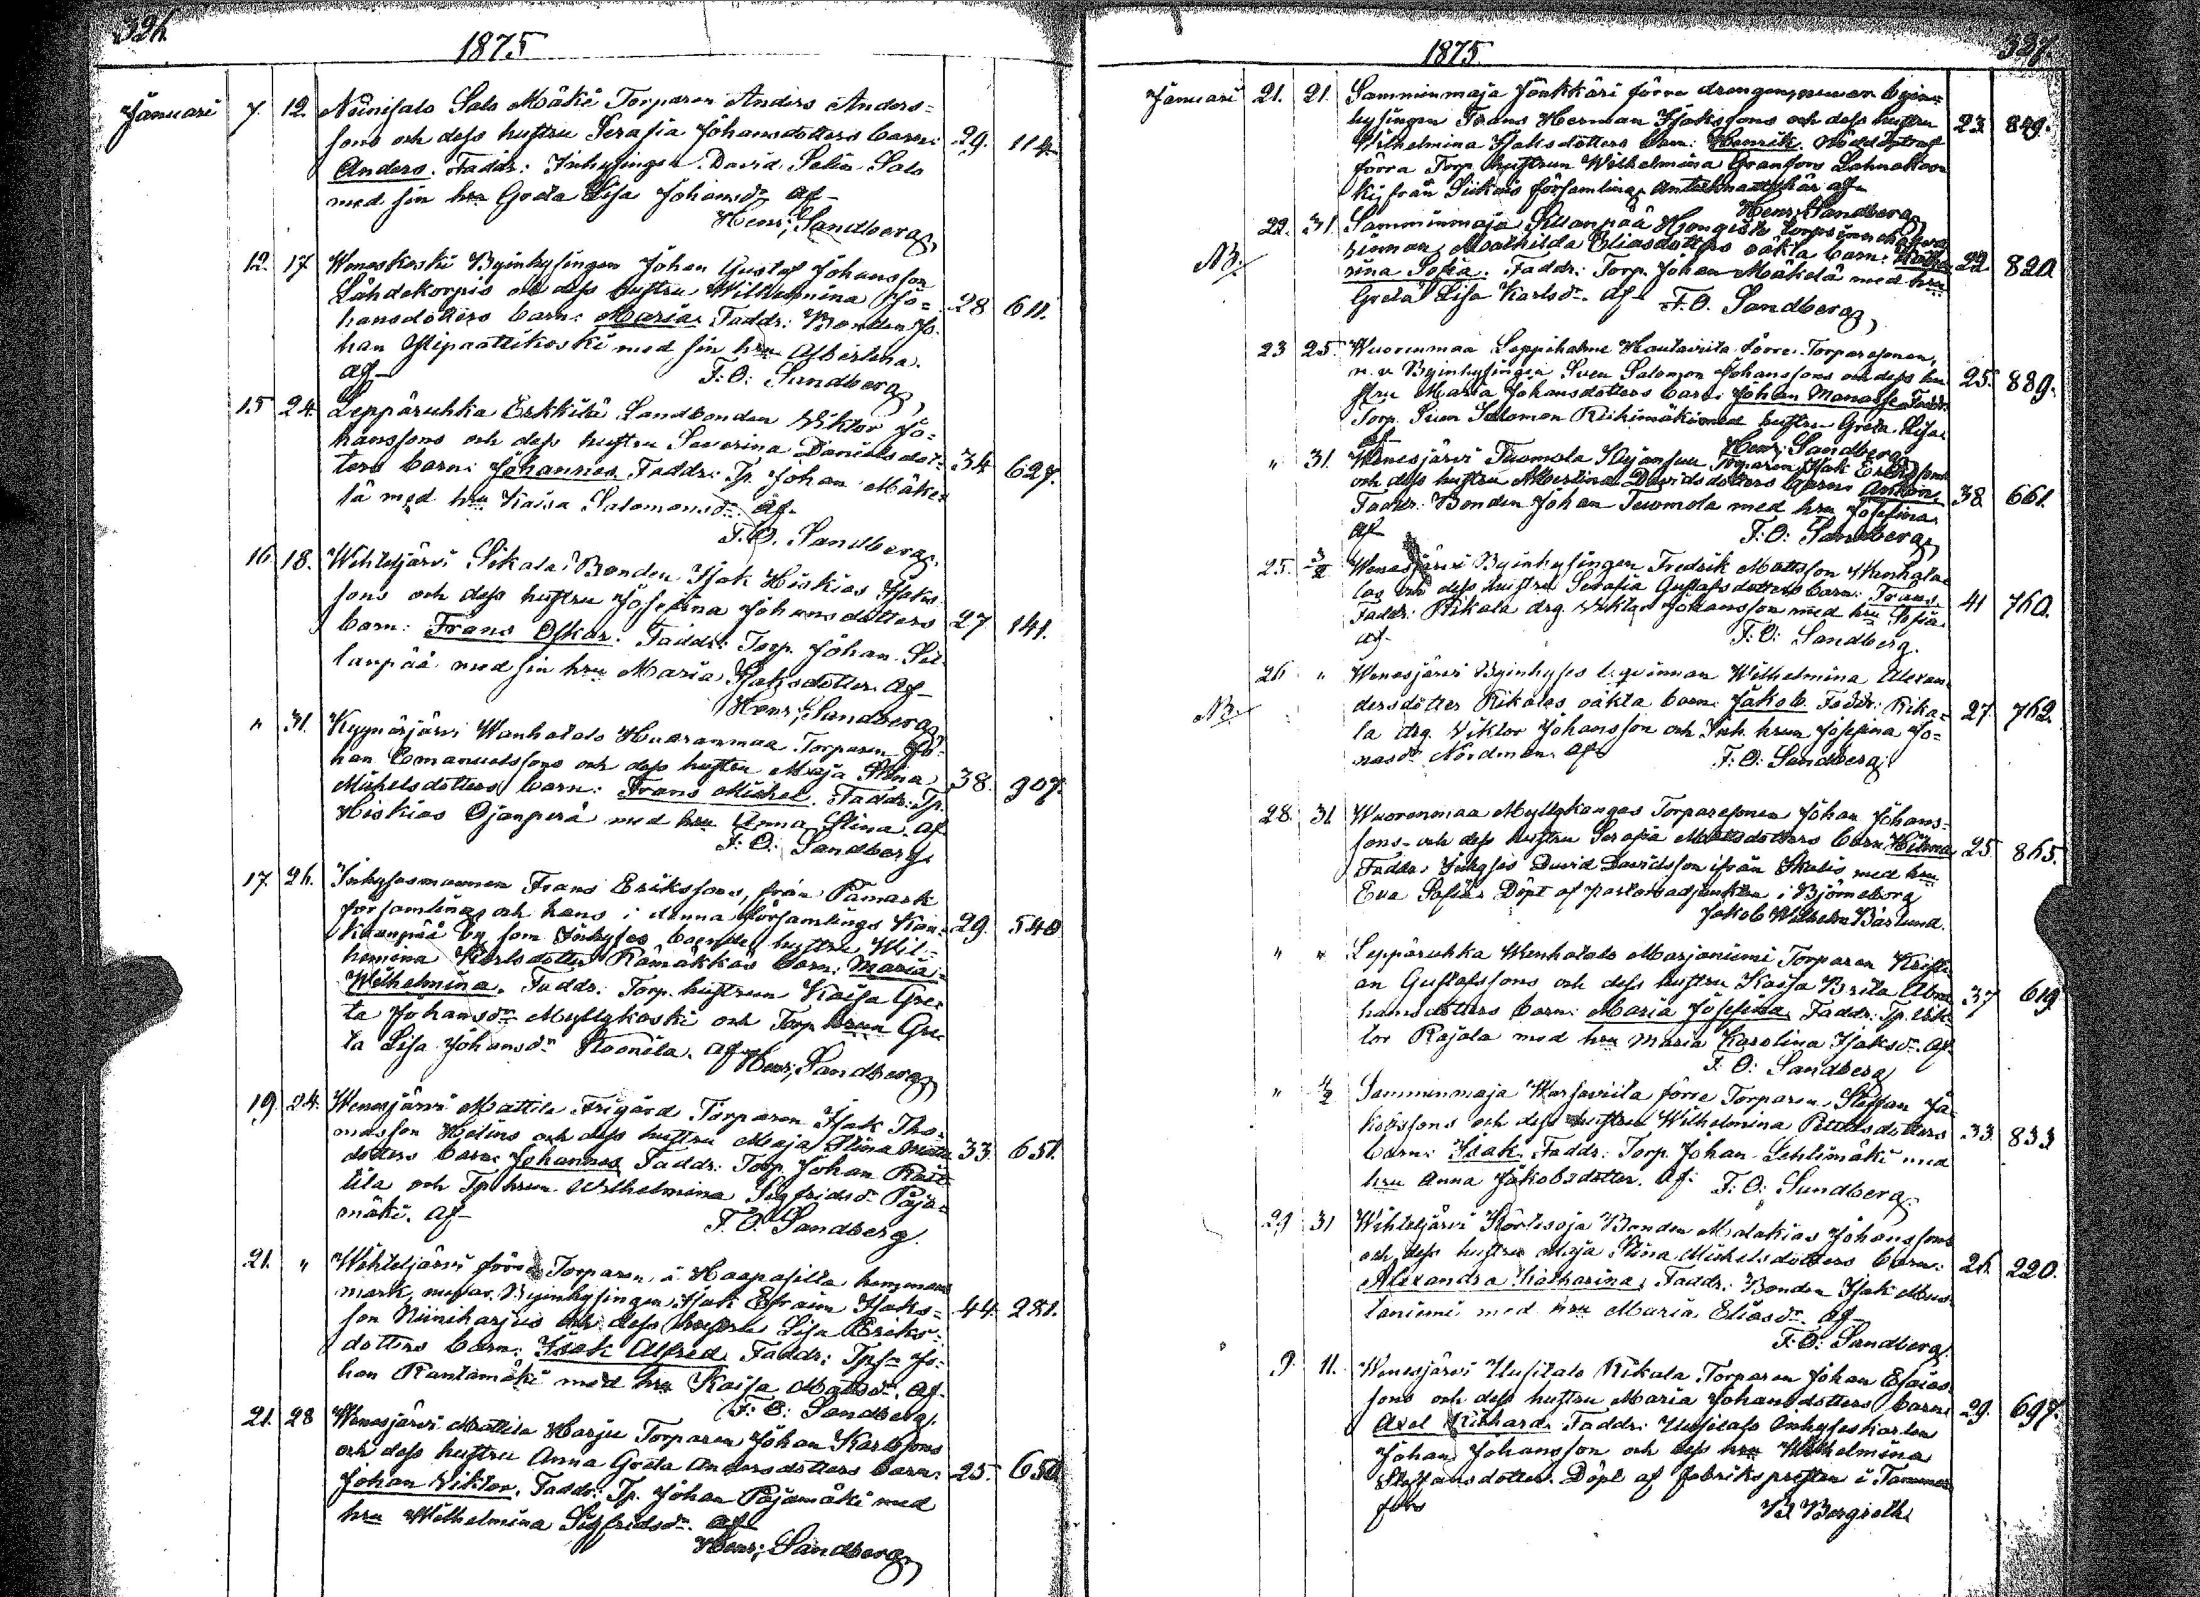 326.
1875
Januari 7. 12. Niinisalo Salo Mäki Torparen Anders Anders=
sons och dess hustru Serafia Johansdotters barn: 29. 114.
Anders. Faddr: Inhysingen David Selin Salo
med sin hru Greta Lisa Johansdr. Af
Henr; Sandberg,
12. 17 Byinhysingen Johan Gustaf Johansson
Lähdekorpis och dess hustru Wilhelmina Jo= 28 611.
hansdotters barn: Maria. Faddr: Bonden Jo=
han med sin hru Albertina.
af F: O: Sandberg,
15 24. Leppäruhka Erkkilä Landbonden Viktor Jo=
hanssons och dess hustru Severina Danielsdot= 34 627.
ters barn: Johannes. Faddr: Tp. Johan Mäke=
lä med hru Kaisa Salomonsdr. Af
F. O. Sandberg.
16. 18. Wihteljärvi Sikala Bonden Isak Hiskias Isaks
sons och dess hustru Josefina Johansdotters 27 141.
barn: Frans Oskar. Faddr: Torp. Johan Sil
lanpää med sin hru Maria Isaksdotter. Af
Henr; Sandberg,
" 31. Kyynärjärvi Wanhatalo Huaranmaa Torparen Jo=
han Emanuelssons och dess hustru Maja Stina 38. 307.
Michelsdotters barn: Frans Michel. Faddr: Tp.
Hiskias Ojanperä med hru Anna Stina. Af
F: O: Sandberg.
17. 26. Inhysesmannen Frans Erikssons, från Påmark
församling och hans i denna församlings Kan= 29. 540
kaanpää by som Inhyses boende hustru Wil=
hemina Karlsdotter Rämäkkäs barn: Maria
Wilhelmina. Faddr: Torp. hustrun Kaisa Gre=
ta Johansdr. Myllykoski och Torp. hrun Gre=
ta Lisa Johansdr. Af Henr; Sandberg,
19. 24. Wenesjärvi Mattila Frigård Torparen Isak Tho=
masson Helins och dess hustru Maja Stina Matts 33. 651.
dotters barn: Johannes. Faddr: Torp. Johan
tila och Tp. hrun Wilhelmina Sigfridsdr. Paja=
mäki. Af F. O. Sandberg.
21. " Wihteljärvi förre Torparen i Haapasilta hemmans
mark, nuvar. Byinhysingen Isak Efraim Isaks= 44. 281.
son Niiniharjus och dess hustru Lisa Eriks=
dotters barn: Isak Alfred. Faddr: Tpsn Jo=
han Rantamäki med hru Kaisa Mattsdr. Af
F: O: Sandberg.
21. 28 Wenesjärvi Mattila Harju Torparen Johan Karlssons
och dess hustru Anna Greta Andersdotters barn: 25. 650
Johan Viktor. Faddr: Tp. Johan Pajamäki med
hru Wilhelmina Sigfridsdr. Af
Henr; Sandberg,
327.
1875
Januari 21. 21. Samminmaja Jönkkäri förre drängen, nuvar. byin=
hysingen Frans Herman Isakssons och dess hustru 23. 849.
Wilhelmina Isaksdotters barn: Henrik. Nöddöpt af
förra Torp. hustrun Wilhelmina Gransfors Lahnakos
ki, från Siikais församling. Antecknadt här af
Henr; Sandberg,
22. 31. Samminmaja Sillanpää Hongisto
NB. qvinnan Mathilda Eliasdotters oäkta barn: 22 820
rina Sofia. Faddr: Torp. Johan Mäkelä med hru
Greta Lisa Karlsdr. Af F. O. Sandberg,
23 25. Wuorenmaa Leppiholme Hautaviita förre Torparesonen,
n. v. Byinhysingen Sven Salomon Johanssons och dess hu 25. 889.
stru Maria Johansdotters barn: Johan Manasse. Faddr:
Torp. Sven Salomon Riihimäki med hustru Greta Lisa.
af Henr; Sandberg,
" 31. Wenesjärvi Tuomola Torparen Isak Erikssons
och dess hustru Albertina Davidsdotters barn: Anton. 38. 661.
Faddr: Bonden Johan Tuomola med hru Josefina.
Af F: O: Sandberg,
25. 2/2 Wenesjärvi Byinhysingen Fredrik Mattsson Wanhata
los och dess hustru Serafia Gustafsdotters barn: Frans 41 760.
Faddr: Rikala drg. Viktor Johansson med hru Sofia
af. F: O: Sandberg.
26 " Wenesjärvi Byinhyses l: qvinnan Wilhelmina Alexan
NB. dersdotter Rikalas oäkta barn: Jakob. Faddr: Rika= 27. 762.
la drg. Viktor Johansson och Inh. hrun Josefina Jo=
nasdr. Nordman. Af F: O: Sandberg.
28. 31. Wuorenmaa Myllykangas Torparesonen Johan Johans=
sons och dess hustru Serafia Mattsdotters barn: Hilma 25 865.
Faddr: Inhyses David Davidsson ifrån med hru
Eva Sofia. Döpt af pastorsadjunkten i Björneborg
Jakob Wilhelm Båslund.
" " Leppäruhka Wenhatalo Marjaniemi Torparen Kristi
an Gustafssons och dess hustru Kaisa Brita Abra 37 619
hamsdotters barn: Maria Josefina. Faddr: Tp. Vik=
tor Rajala med hru Maria Karolina Isaksdr. Af
F: O: Sandberg
" 4/2 Samminmaja Warsaviita förre Torparen Staffan Ja=
kobssons och dess hustru Wilhelmina Pettersdotters 33 833
barn: Isak. Faddr: Torp. Johan Lehtimäki med
hru Anna Jakobsdotter. Af: F: O: Sandberg.
29 31 Wihteljärvi Körtesoja Bonden Malakias Johanssons
och dess hustru Maja Stina Michelsdotters barn: 26. 220.
Alexandra Katharina. Faddr: Bonden Isak Mus
taniemi med hru Maria Eliasdr. Af
F: O: Sandberg.
9. 11. Wenesjärvi Uusitalo Rikala Torparen Johan Esaias
sons och dess hustru Maria Johansdotters barn: 29. 697.
Axel Rikhard. Faddr: Uusitalo Inhyseskarlen
Johan Johansson och dess hru Wilhelmina
Staffansdotter. Döpt af fabrikspresten i Tammer
fors